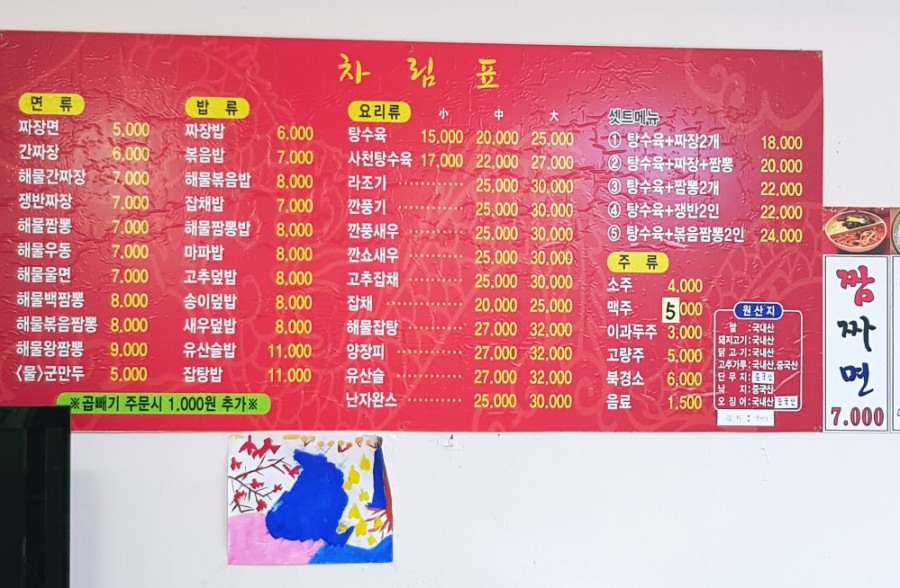 차 림 표
면 류
짜장면 5.000
간짜장 6.000
해물간짜장 7.000
쟁반짜장 7.000
해물짬뽕 7.000
해물우동 7.000
해물울면 7.000
해물백짬뽕 8.000
해물볶음짬뽕 8.000
해물왕짬뽕 9.000
<물>군만두 5.000
※곱빼기 주문시 1.000원 추가※
밥 류
짜장밥 6.000
볶음밥 7.000
해물볶음밥 8.000
잡채밥 7.000
해물짬뽕밥 8.000
마파밥 8.000
고추덮밥 8.000
송이덮밥 8.000
새우덮밥 8.000
유산슬밥 11.000
잡탕밥 11.000
요리류 小 中 大
탕수육 15.000 20.000 25.000
사천탕수육 17.000 22.000 27.000
라조기 25.000 30.000
깐풍기 25.000 30.000
깐풍새우 25.000 30.000
깐쇼새우 25.000 30.000
고추잡채 25.000 30.000
잡채 20.000 25.000
해물잡탕 27.000 32.000
양장피 27.000 32.000
유산슬 27.000 32.000
난자완스 25.000 30.000
셋트메뉴
① 탕수육+짜장2개 18.000
② 탕수육+짜장+짬뽕 20.000
③ 탕수육+짬뽕2개 22.000
④ 탕수육+쟁반2인 22.000
⑤ 탕수육+볶음짬뽕2인 24.000
주 류
소주 4.000
맥주 5.000
이과두주 3.000
고량주 5.000
북경소 6.000
음료 1.500
원산지
쌀 :국내산
돼지고기:국내산
닭고기:국내산
고추가루:국내산,중국산
단무지:중국산
낙지:중국산
오징어:국내산
짬
짜
면
7.000